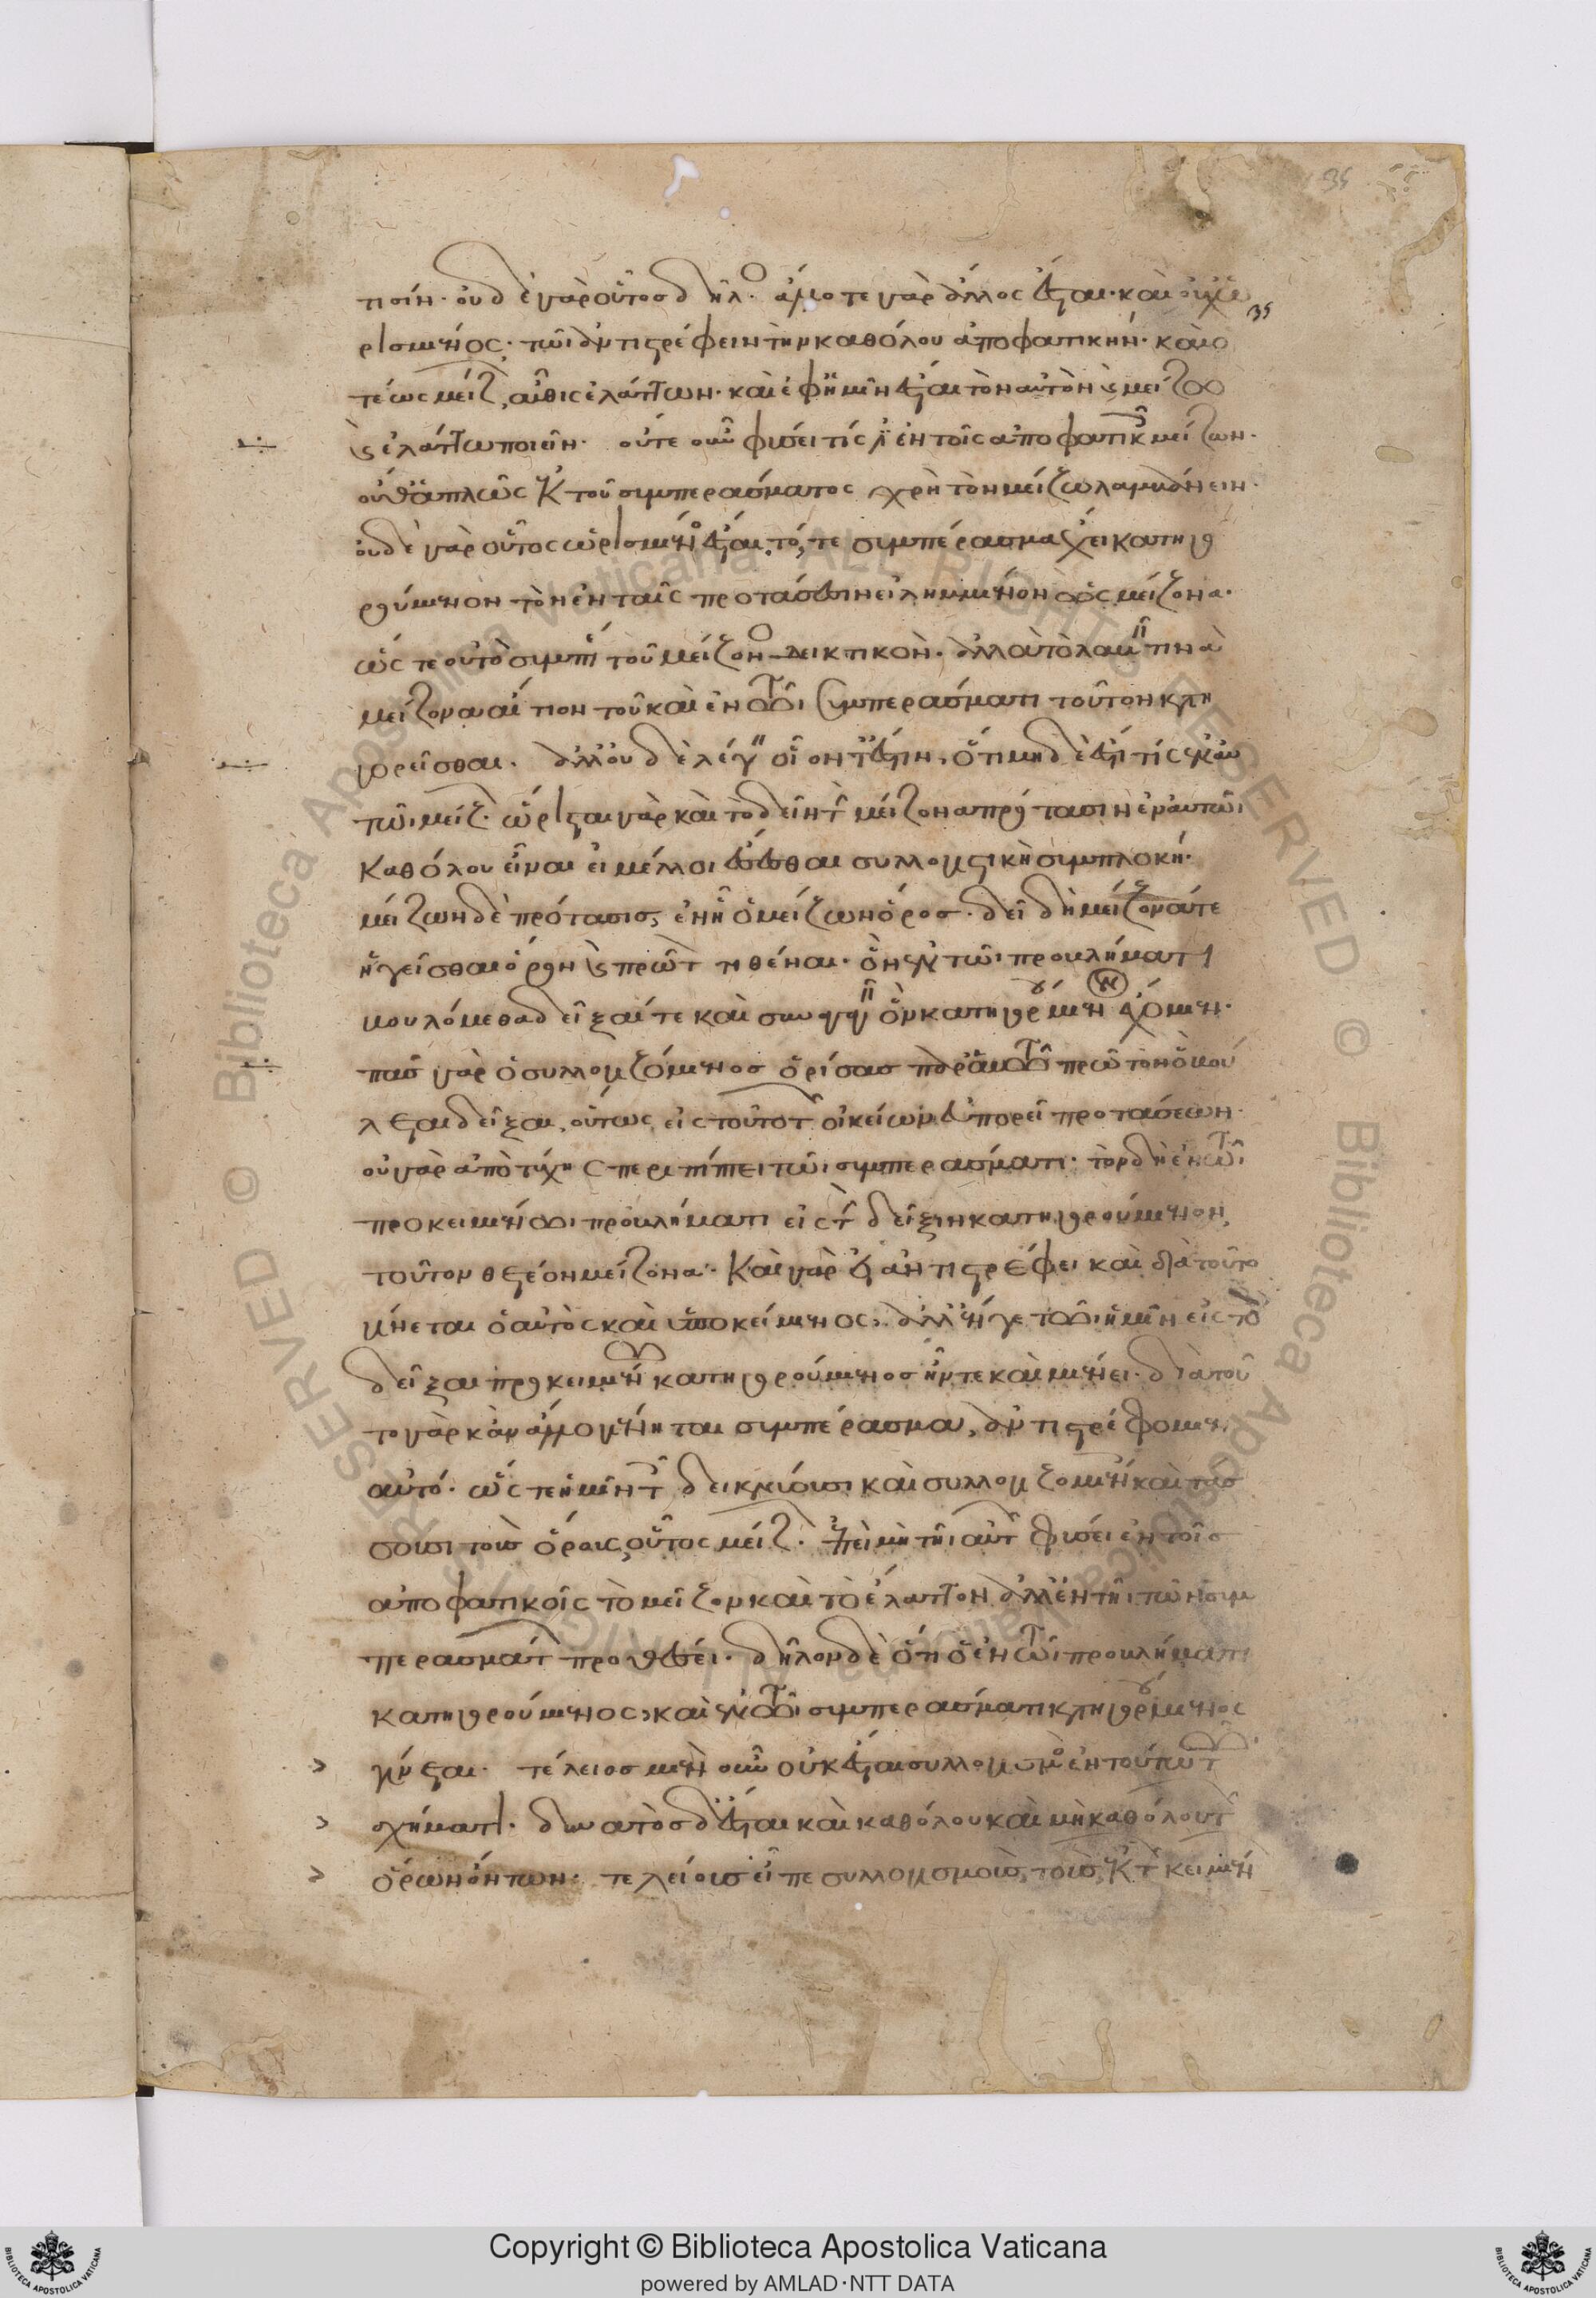 τισίν· οὐδὲ γὰρ οὗτος δῆλ· ἄλλοτε γὰρ ἄλλος ἔσται· καὶ οὐχ ὡ
ρισμένος· τῶι ἀντιστρέφειν τὴν καθόλου ἀποφατικήν· καὶ ὁ
τέως μείζ, αὖθις ἐλάττων· καὶ ἐφ ἡμῖν ἔσται τὸν αὐτὸν ϗ μείζω
ϗ ἐλάττω ποιεῖν· οὔτε οὖν φύσει τίς ἐν τοῖς ἀποφατικ μείζων·
οὔθ ἁπλῶς ἐκ τοῦ συμπεράσματος χρὴ τὸν μείζω λαμβάνειν·
οὐδὲ γὰρ οὗτος ὡρισμένος ἔσται· τό, τε συμπέρασμα ἔχει κατηγο
ρούμενον τὸν ἐν ταῖς προτάσεσιν εἰλημμένον ὡς μείζονα·
ὥστε οὐ τὸ συμπ τοῦ μείζον δεικτικόν· ἀλλὰ τὸ λαβ τινὰ
μείζονα αἴτιον τοῦ καὶ ἐν τῶι συμπεράσματι τοῦτον κατη
γορεῖσθαι· ἀλλ οὐδὲ λέγ οἷόν τ ἔστιν, ὅτι μηδὲ ἔστι τίς ἐν αὐ
τῶι μείζ· ὥρισται γὰρ καὶ τὸ δεῖν τ μείζονα πρότασιν ἐν αὐτῶι
καθόλου εἶναι εἰ μέλλοι ἔσεσθαι συλλογιστικὴ συμπλοκή·
μείζων δὲ πρότασις, ἐν ἧ ὁ μείζων ὅρος· δεῖ δὴ μείζονά τε
ἡγεῖσθαι ὅρον ϗ πρῶτ τιθέναι· ὃν ἐν τῶι προβλήματι
βουλόμεθα δεῖξαί τε καὶ συναγαγ ὃν κατηγορούμεν ἔχομεν·
πᾶς γὰρ ὁ συλλογιζόμενος ὁρίσας παρ αὑτῶ πρῶτον ὃ βού
λεται δεῖξαι, οὕτως εἰς τοῦτο τ οἰκείων εὐπορεῖ προτάσεων·
οὐ γὰρ ἀπὸ τύχης περιπίπτει τῶι συμπεράσματι· τὸν δὴ ἐν τῶι
προκειμένωι προβλήματι εἰς τ δεῖξιν κατηγορούμενον,
τοῦτον θετέον μείζονα· Καὶ γὰρ ἂν ἀντιστρέφει καὶ διὰ τοῦτο
γίνεται ὁ αὐτὸς καὶ ὑποκείμενος, ἀλλ ἔν γε τῶι ἡμῖν εἰς τὸ
δεῖξαι προκειμέν κατηγορούμενος ἦν τε καὶ μένει· διὰ τοῦ
το γὰρ κἂν ἄλλο γένηται συμπέρασμα, ἀντιστρέφομεν
αὐτό· ὥστε ἡμῖν τ δεικνύουσι καὶ συλλογιζομέν καὶ τάσ
σουσι τοὺς ὅρους, οὗτος μείζ· ἐπεὶ μὴ τῆι αὐτ φύσει ἐν τοῖς
ἀποφατικοῖς τὸ μεῖζον καὶ τὸ ἔλαττον ἀλλ ἐν τῆι τῶν συμ
περασμάτ προθέσει· δῆλον δὲ ὅτι ὁ ἐν τῶι προβλήματι
κατηγορούμενος, καὶ ἐν τῶι συμπεράσματι κατηγορούμενος
γίνεται· τέλειος μὲν οὖν οὐκ ἔσται συλλογισμὸς ἐν τούτω τ
σχήματι· δυνατὸς δ ἔσται καὶ καθόλου καὶ μὴ καθόλου τ
ὅρων ὄντων· τελείους εἶπε συλλογισμοὺς, τοὺς ἐκ τ κειμέν